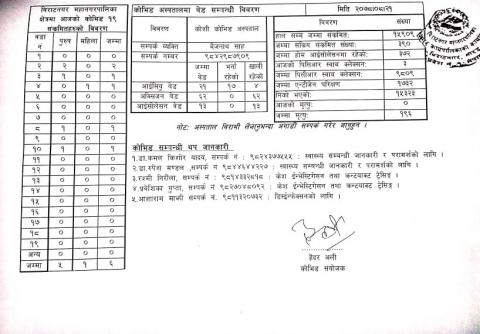 विराटनगर महानगरपालिका
क्षेत्रमा आजको कोभिड १९
संक्रमितहरुको विवरण
वडा नं पुरुष महिला जम्मा
१ ० ० ०
२ २ ० २
३ १ ० १
४ ० १ १
५ ० ० ०
६ ० ० ०
७ ० ० ०
८ १ ० १
९ ० ० ०
१० १ ० १
११ ० ० ०
१२ ० ० ०
१३ ० ० ०
१४ ० ० ०
१५ ० ० ०
१६ ० ० ०
१७ ० ० ०
१८ ० ० ०
१९ ० ० ०
अन्य ० ० ०
जम्मा ५ १ ६
कोभिड अस्पतालमा बेड सम्वन्धी विवरण
विवरण कोशी कोभिड अस्पताल
सम्पर्क व्यक्ति बैजनाथ साह
सम्पर्क नम्बर ९८४२९८७९०९
जम्मा बेड भर्ना रहेको खाली रहेको
आईसियु वेड २१ १७ ४
अक्सिजन वेड ६२ ० ६२
आईसोलेसन वेड १३ ० १३
मिति २०७८/०८/२१
विवरण संख्या
हाल सम्म जम्मा संक्रमित: १५९०९
जम्मा सक्रिय संक्रमित संख्या: ३९०
जम्मा होम आईसोलेसनमा रहेको: ३७२
आजको पिसिआर स्वाब क्लेक्सन: ३
जम्मा पिसिआर स्वाब क्लेक्सन: ९८०९
जम्मा एन्टीजिन परिक्षण १७३२
निको भएको: १५३२३
आजको मृत्यु: ०
जम्मा मृत्यु: १९६
नोट: अस्पताल विरामी लैजानुभन्दा अगाडी सम्पर्क गरेर जानुहुन ।
कोभिड सम्वन्धी थप जानकारी
१.डा.कमल किशोर यादव, सम्पर्क नं : ९८२४३७७५५५ : स्वास्थ्य सम्वन्धी जानकारी र परामर्शको लागि ।
२.डा.राजेश मण्डल ,सम्पर्क नं : ९८४४६४४२२७ : स्वास्थ्य सम्वन्धी जानकारी र परामर्शको लागि ।
३.रश्मी गिरीला, सम्पर्क नं : ९८१४३३२८१८ : केश ईन्भेस्टिगेसन तथा कन्टयाक्ट ट्रेसिङ ।
४.प्रवेशिका गुप्ता, सम्पर्क नं : ९८२७०४८०९२ : केश ईन्भेस्टिगेसन तथा कन्टयाक्ट ट्रेसिङ ।
५.आशाराम माझी सम्पर्क नं ९८११३२०७३२ : डिस्ईन्फेक्सनको लागि ।
हैदर अली
कोभिड संयोजक